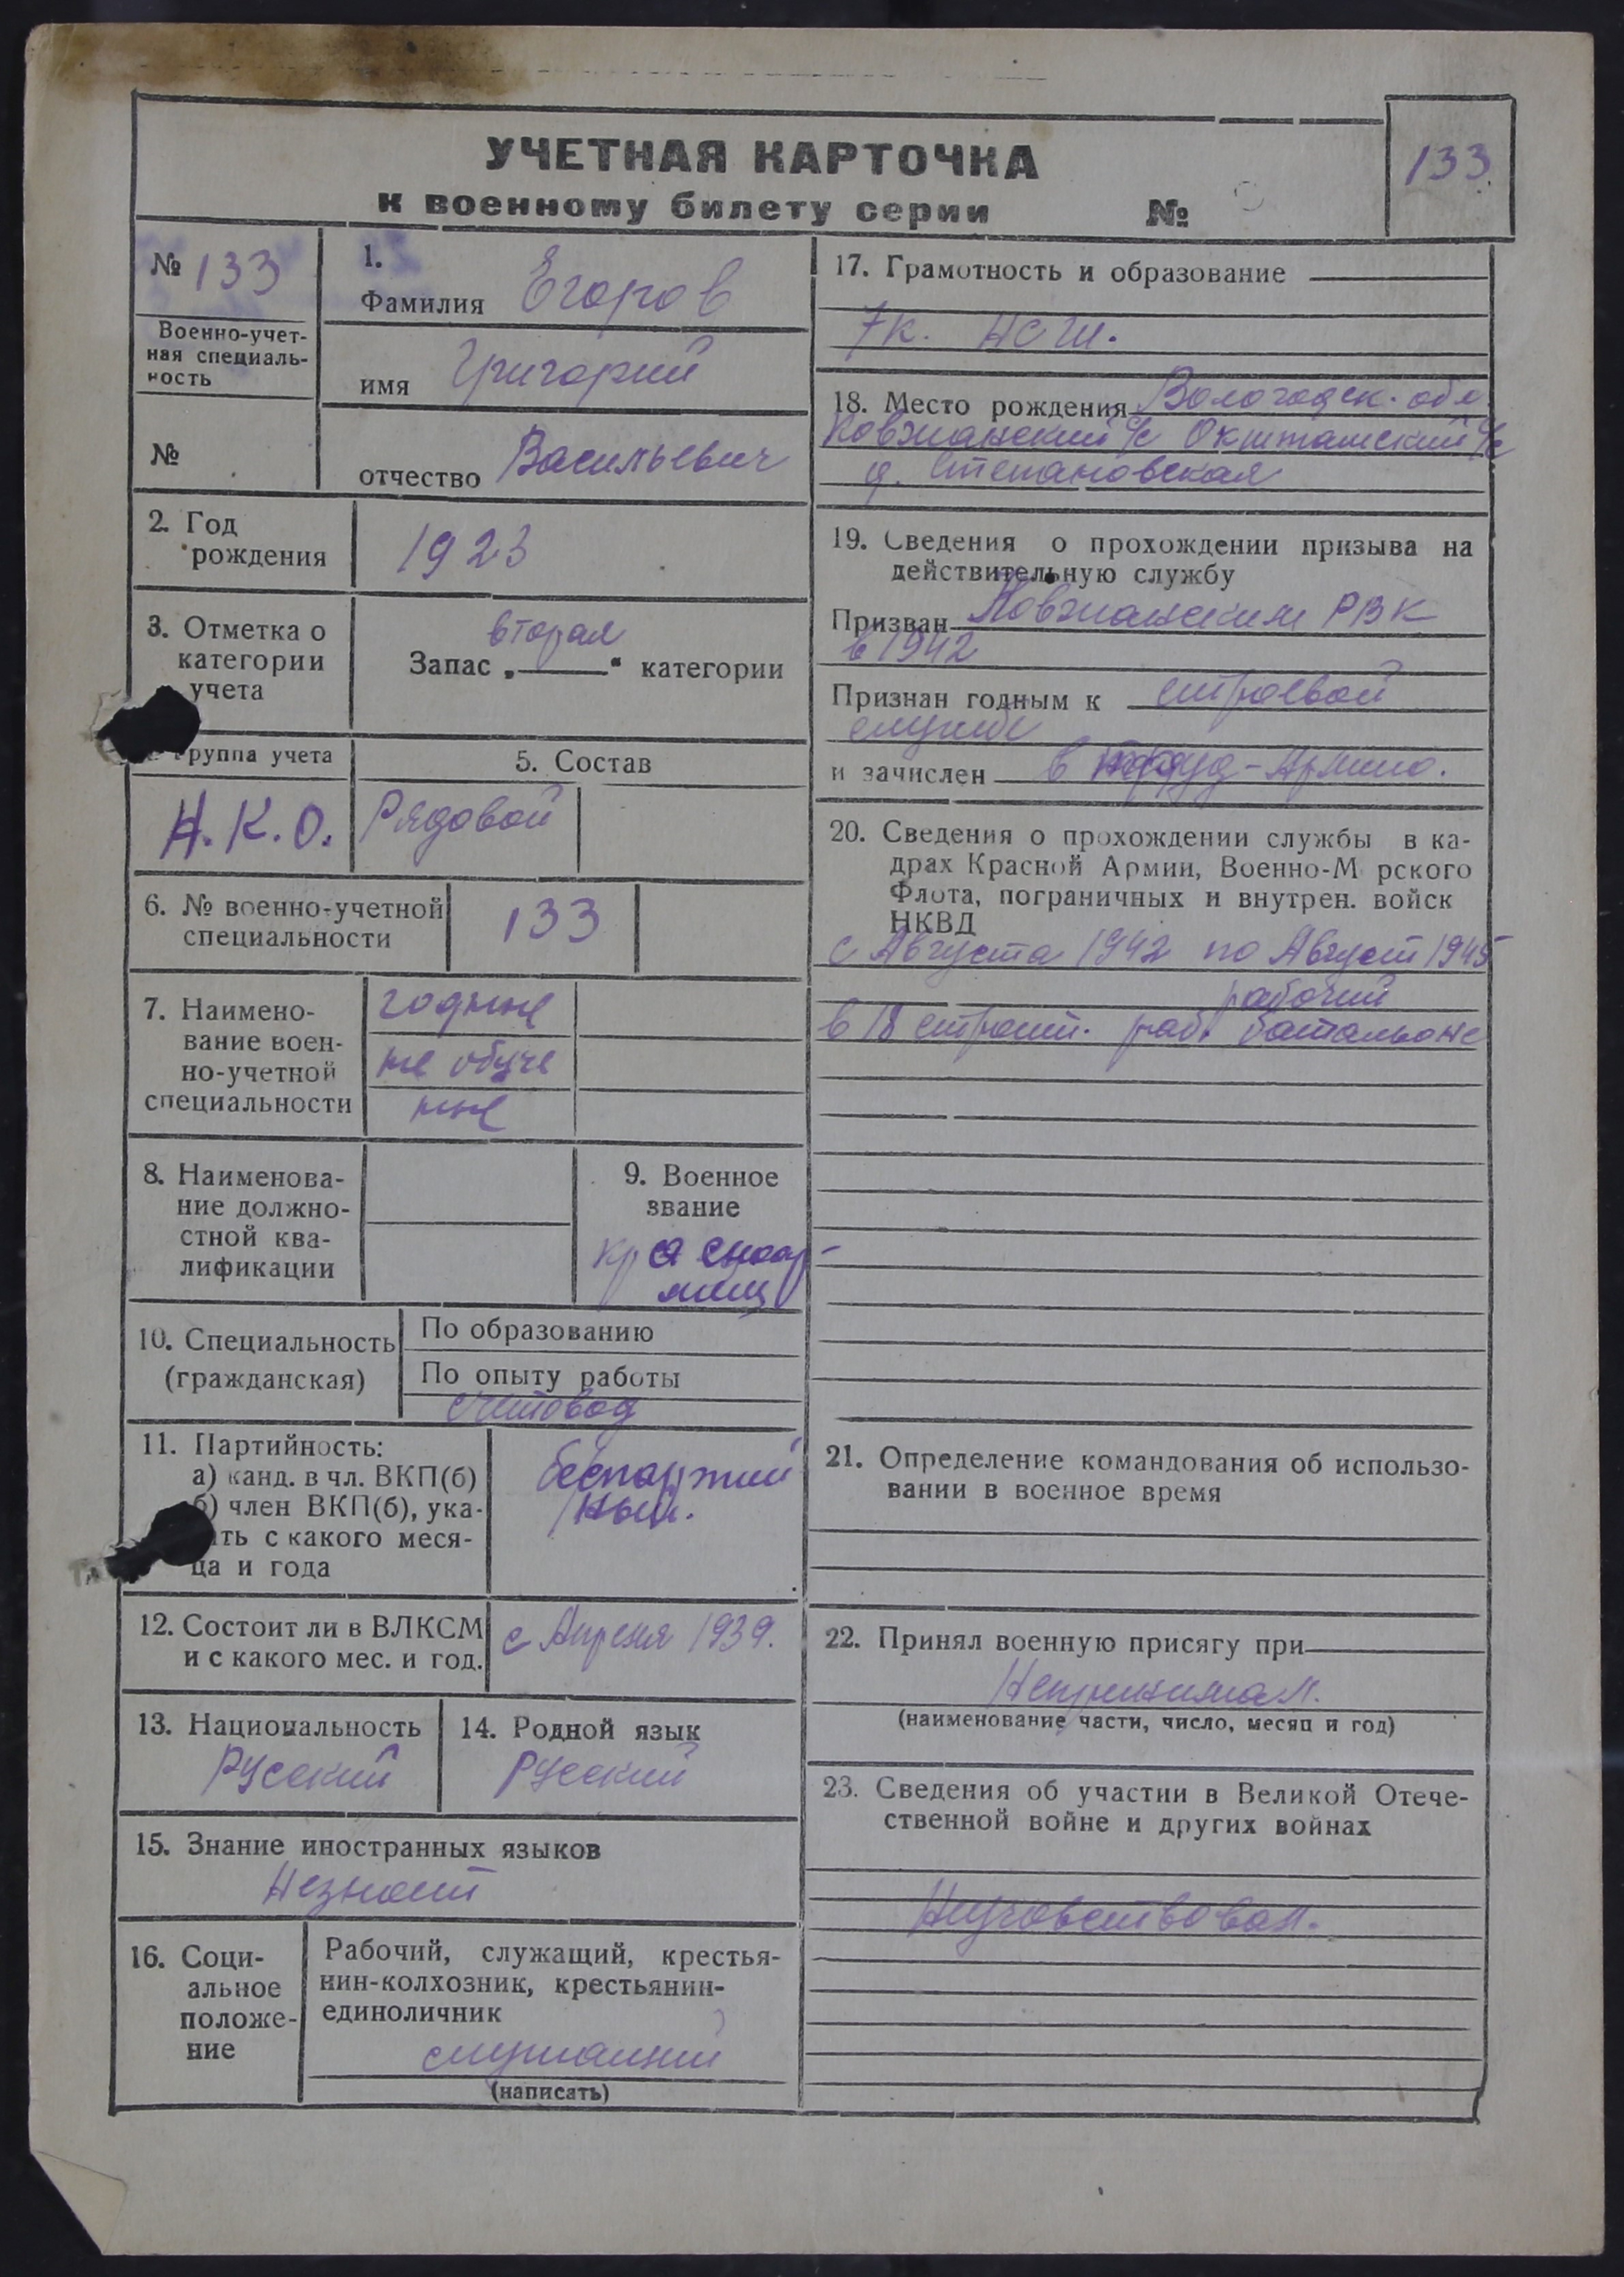 УЧЕТНАЯ КАРТОЧКА
к военному билету серии №
133
№ 133
Военно-учет-
ная специаль-
ность
№
1.
Фамилия Егоров
имя Григорий
отчество Васильевич
2. Год
рождения
1923
3. Отметка о
категории
учета
вторая
Запас „ “ категории
группа учета
Н.К.О.
5. Состав
Рядовой
6. № военно-учетной
специальности
133
7. Наимено-
вание воен-
но-учетной
специальности
годные
не обуче
ные
8. Наименова-
ние должно-
стной ква-
лификации
9. Военное
звание
красноар-
меец
10. Специальность
(гражданская)
По образованию
По опыту работы
счетовод
11. Партийность:
а) канд. в чл. ВКП(б)
б) член ВКП(б), ука-
ть с какого меся-
ца и года
беспартий
ный.
12. Состоит ли в ВЛКСМ
и с какого мес. и год.
с Апреля 1939.
13. Национальность
Русский
14. Родной язык
Русский
15. Знание иностранных языков
Незнает
16. Соци-
альное
положе-
ние
Рабочий, служащий, крестья-
нин-колхозник, крестьянин-
единоличник
служащий
(написать)
17. Грамотность и образование
7к. НСШ.
18. Место рождения Вологодск. обл
Ковжанский с/с Окштамский с/с
д. Степановская
19. Сведения о прохождении призыва на
действительную службу
Призван Ковжанским РВК
в 1942
Признан годным к строевой
службе
и зачислен в труд-Армию.
20. Сведения о прохождении службы в ка-
драх Красной Армии, Военно-М рского
Флота, пограничных и внутрен. войск
НКВД
с Августа 1942 по Август 1945
рабочий
в 18 строит. раб. батальоне
21. Определение командования об использо-
вании в военное время
22. Принял военную присягу при
Непринимал.
(наименование части, число, месяц и год)
23. Сведения об участии в Великой Отече-
ственной войне и других войнах
Неучавствовал.